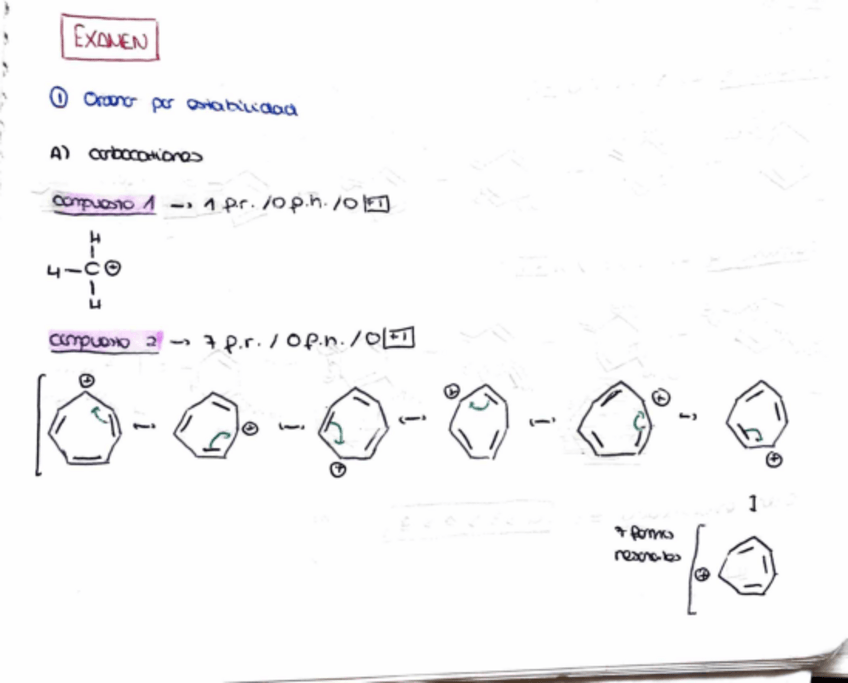 EXAMEN
① Ordenar por estabilidad
A) carbocationes
compuesto 1 → 1 f.r. / 0 p.n. / 0 +1
H
H-C⊕
H
compuesto 2 → 7 f.r. / 0 p.n. / 0 +1
7 formas
resonantes